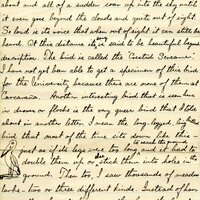 about and all of a sudden soar up into the sky until
it even goes beyond the clouds and quite out of sight.
So loud is its voice that when out of sight it can still be
heard. At this distance it is said to be beautiful beyond
description. The bird is called the Crested Screamer.
I have not yet been able to get a specimen of this bird
for the University because there are none of them at
. Another interesting bird that is seen here
in droves or flocks is the very queer bird that I told
about in another letter. I mean the long-legged, big
bird that most of the time sits down like this
to reach the ground
just as if its legs were too long and it had to
double them up or stick them into holes in
ground. Then too, I saw thousands of
larks - two or three different kinds. Instead of